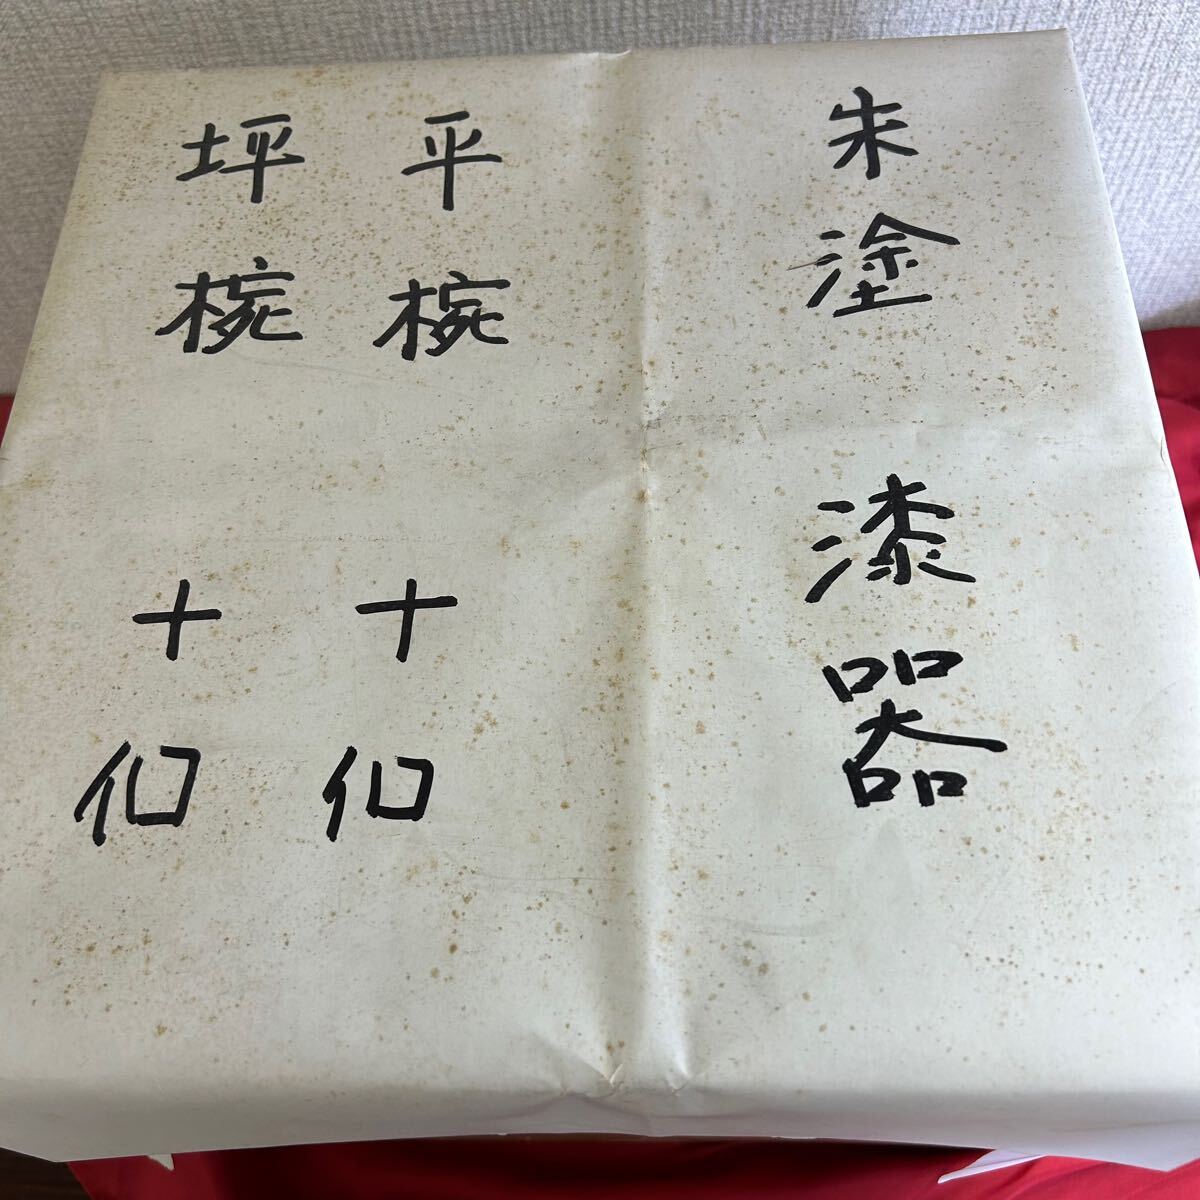 朱塗漆器
平椀十仴
坪椀十仴